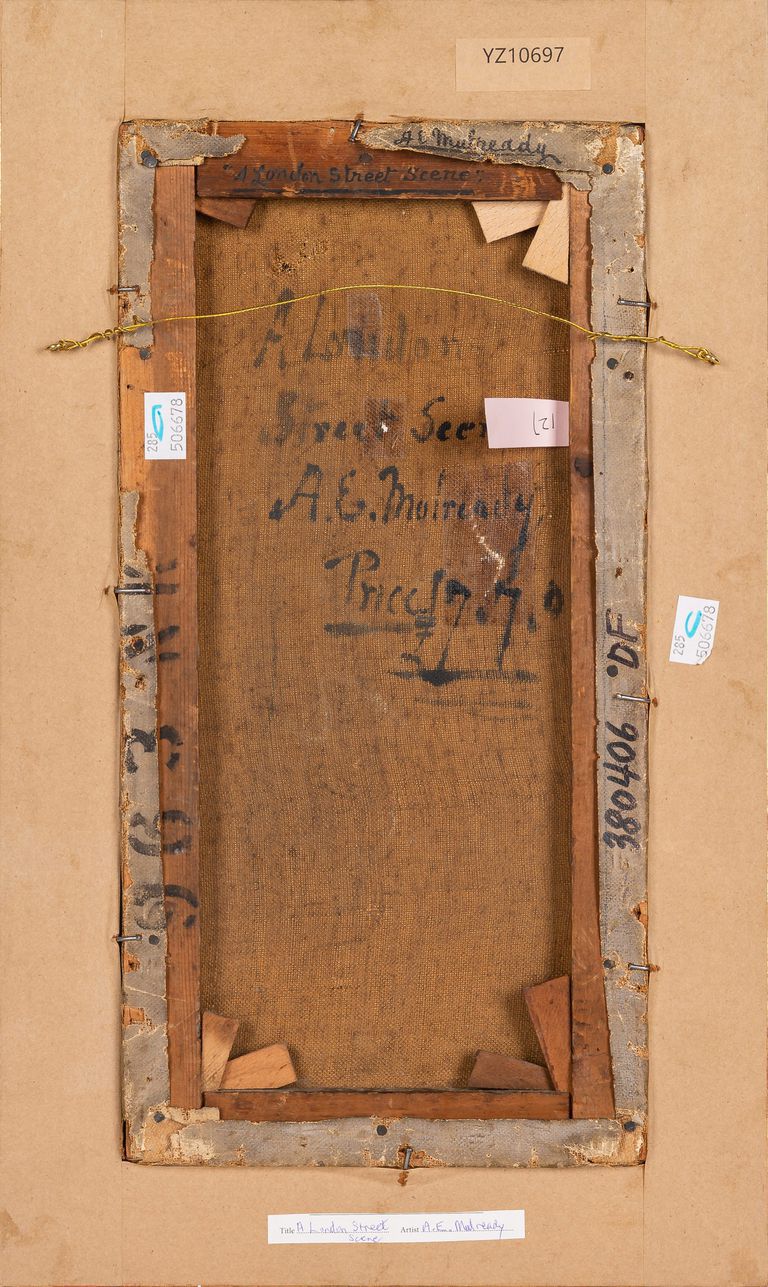 YZ10697
A E Mulready
"A London Street Scene",
A London
Street Scen
A.E. Mulready
Price 17.7.0
285
506678
127
380406 DF
285
506678
Title A London Street Scene Artist A.E. Mulready